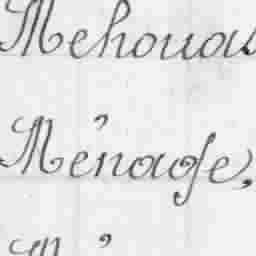 Mehouas
Ménage,